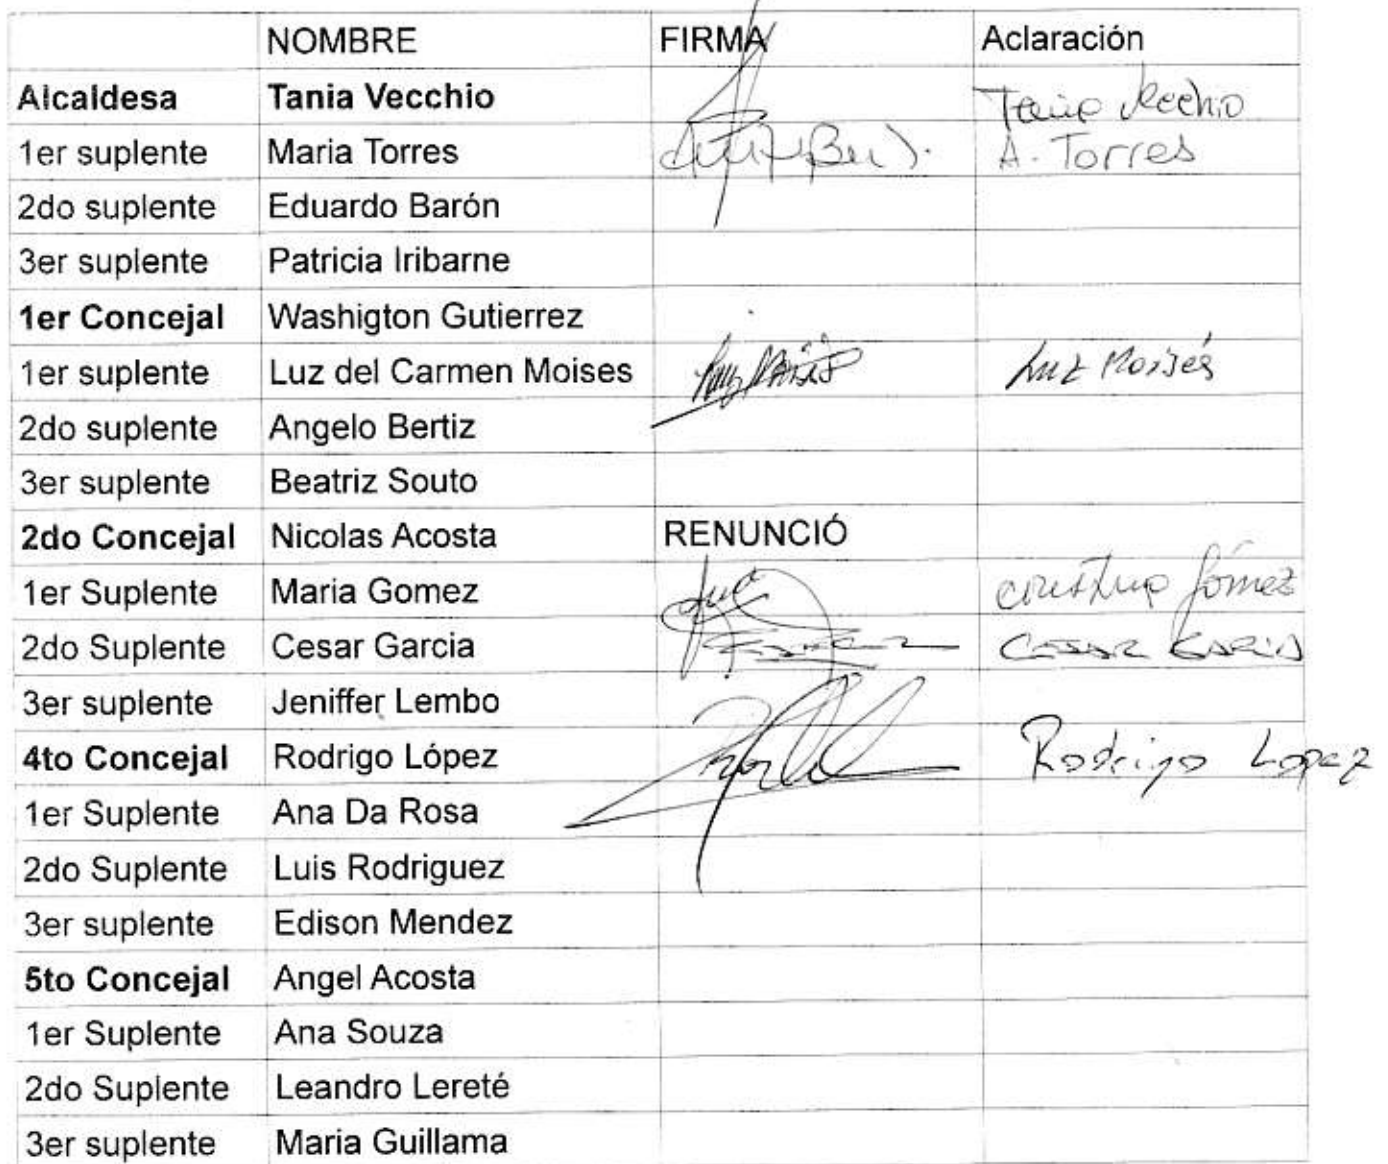 NOMBRE FIRMA Aclaración
Alcaldesa Tania Vecchio Tania Vecchio
1er suplente Maria Torres A. Torres
2do suplente Eduardo Barón
3er suplente Patricia Iribarne
1er Concejal Washigton Gutierrez
1er suplente Luz del Carmen Moises Luz Moisés
2do suplente Angelo Bertiz
3er suplente Beatriz Souto
2do Concejal Nicolas Acosta RENUNCIÓ
1er Suplente Maria Gomez Cristina Gómez
2do Suplente Cesar Garcia CESAR GARCIA
3er suplente Jeniffer Lembo
4to Concejal Rodrigo López Rodrigo Lopez
1er Suplente Ana Da Rosa
2do Suplente Luis Rodriguez
3er suplente Edison Mendez
5to Concejal Angel Acosta
1er Suplente Ana Souza
2do Suplente Leandro Lereté
3er suplente Maria Guillama